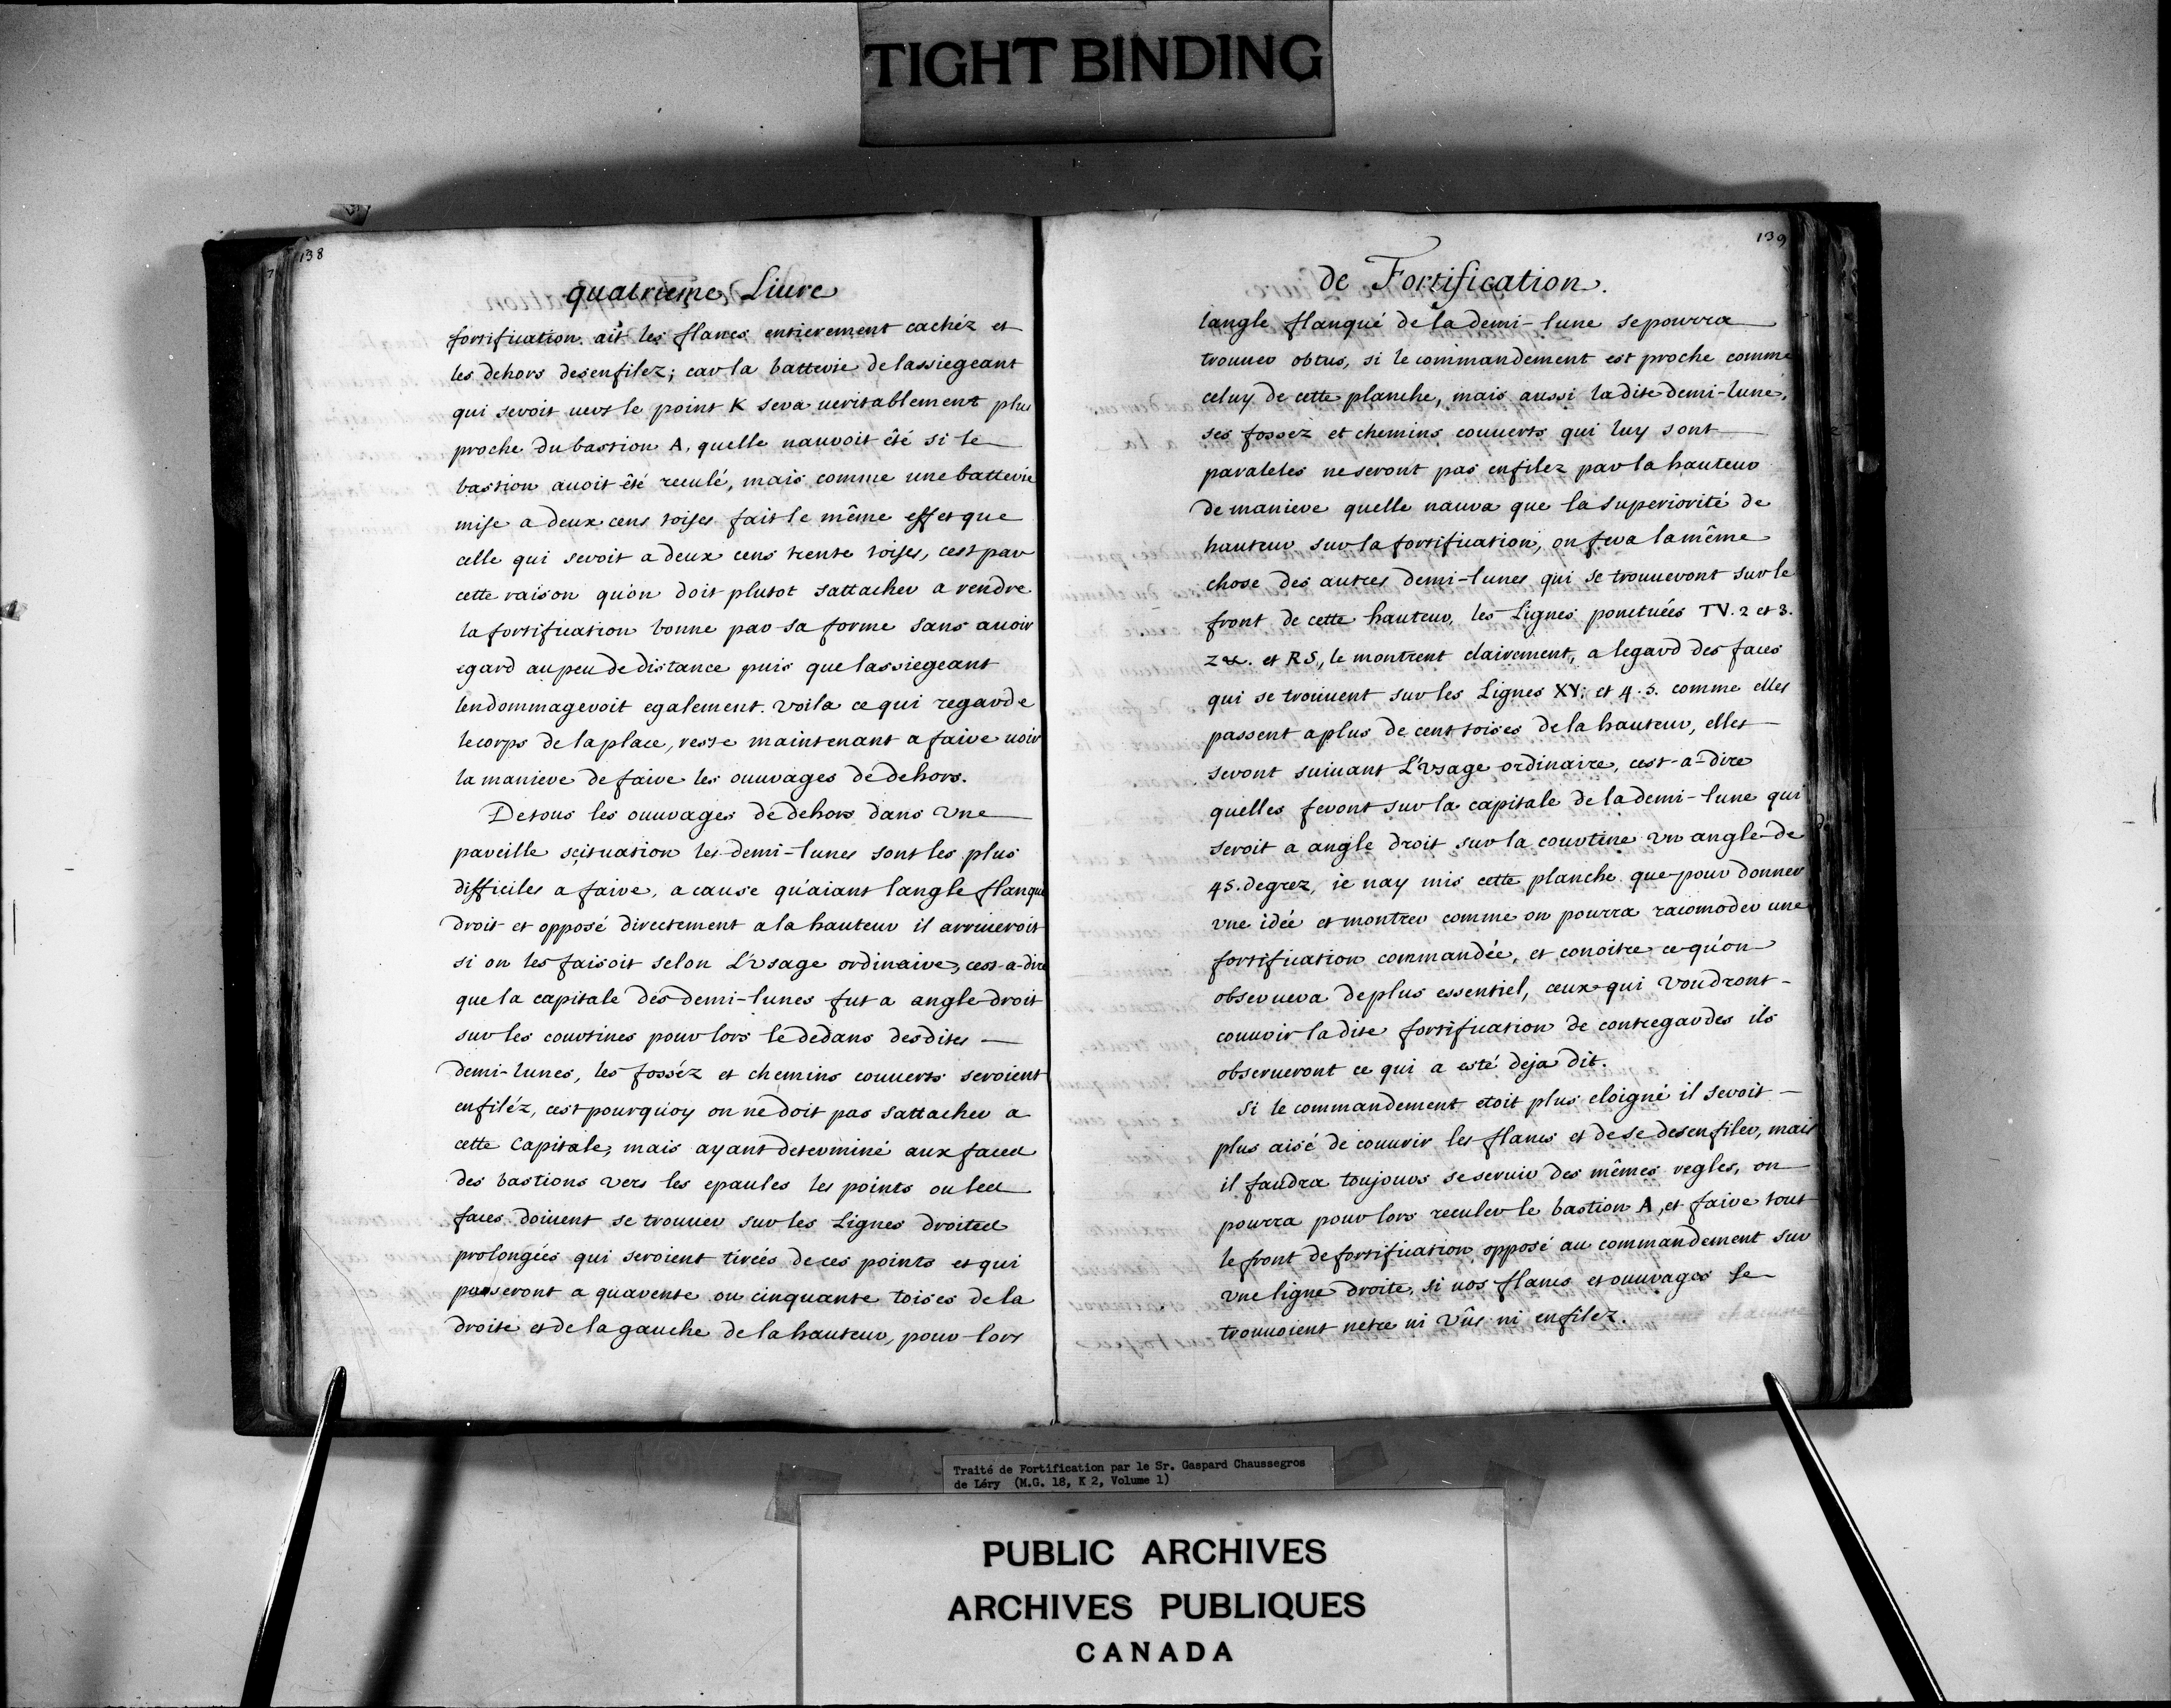 TIGHT BINDING
138
quatrieme Liure
fortification ait les flancs entierement cachéz et
les dehors desenfilez; car la batterie delassiegeant
qui seroit uers le point K sera ueritablement plus
proche du bastion A, quelle nauroit êté si le
bastion auoit êté reculé, mais comme une batterie
mise a deux cens toises fait le même effet que
celle qui seroit a deux cens trente toises, cest par
cette raison qu'on doit plutot sattacher a rendre
la fortification bonne par sa forme sans auoir
egard au peu de distance puis que lassiegeant
lendommageroit egalement. voila ce qui regarde
le corps de la place, reste maintenant a faire uoir
la maniere de faire les ouurages de dehors.
De tous les ouurages de dehors dans vne
pareille scituation les demi-lunes sont les plus
difficiles a faire, a cause qu'aiant langle flanqué
droit et opposé directement a la hauteur il arriueroit
si on les faisoit selon L'vsage ordinaire, cest-a-dire
que la capitale des demi-lunes fut a angle droit
sur les courtines pour lors le dedans desdites
demi-lunes, les fosséz et chemins couuerts seroient
enfiléz, cest pourquoy on ne doit pas sattacher a
cette Capitale, mais ayant determiné aux faces
des bastions vers les epaules les points ou les
faces doiuent se trouuer sur les Lignes droites
prolongées qui seroient tirées de ces points et qui
passeront a quarente ou cinquante toises de la
droite et de la gauche de la hauteur, pour lors
139
de Fortification.
langle flanqué de la demi-lune se pourra
trouuer obtus, si le commandement est proche comme
celuy de cette planche, mais aussi la dite demi-lune,
ses fossez et chemins couuerts qui luy sont
paraleles ne seront pas enfilez par la hauteur
de maniere quelle naura que la superiorité de
hauteur sur la fortification, on fera la même
chose des autres demi-lunes qui se trouueront sur le
front de cette hauteur, les Lignes ponctuées TV. 2 et 3.
Z&. et RS, le montrent clairement, a legard des faces
qui se trouuent sur les Lignes XY; et 4. 5. comme elles
passent a plus de cent toises de la hauteur, elles
seront suiuant L'vsage ordinaire, cest-a-dire
quelles feront sur la capitale de la demi-lune qui
seroit a angle droit sur la courtine vn angle de
45. degrez, ie nay mis cette planche que pour donner
vne idée et montrer comme on pourra racomoder une
fortification commandée, et conoitre ce qu'on
obseruera de plus essentiel, ceux qui voudront
couurir la dite fortification de contregardes ils
obserueront ce qui a esté deja dit.
Si le commandement etoit plus eloigné il seroit
plus aisé de couurir les flancs et de se desenfiler, mais
il faudra toujours se seruir des mêmes regles, on
pourra pour lors reculer le bastion A, et faire tout
le front de fortification opposé au commandement sur
vne ligne droite, si nos flancs et ouurages se
trouuoient netre ni vûs ni enfilez.
Traité de Fortification par le Sr. Gaspard Chaussegros
de Léry (M.G. 18, K 2, Volume 1)
PUBLIC ARCHIVES
ARCHIVES PUBLIQUES
CANADA